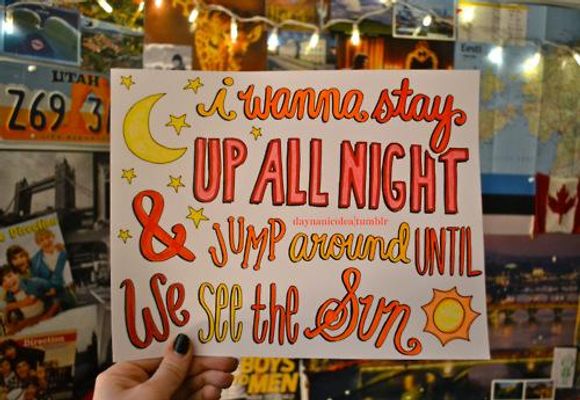 UTAH
Z69 3
i wanna stay
UP ALL NIGHT
daynanicolea|tumblr
& JUMP around UNTIL
We see the Sun
Eesti
Direction
Direction
BOYS TO MEN